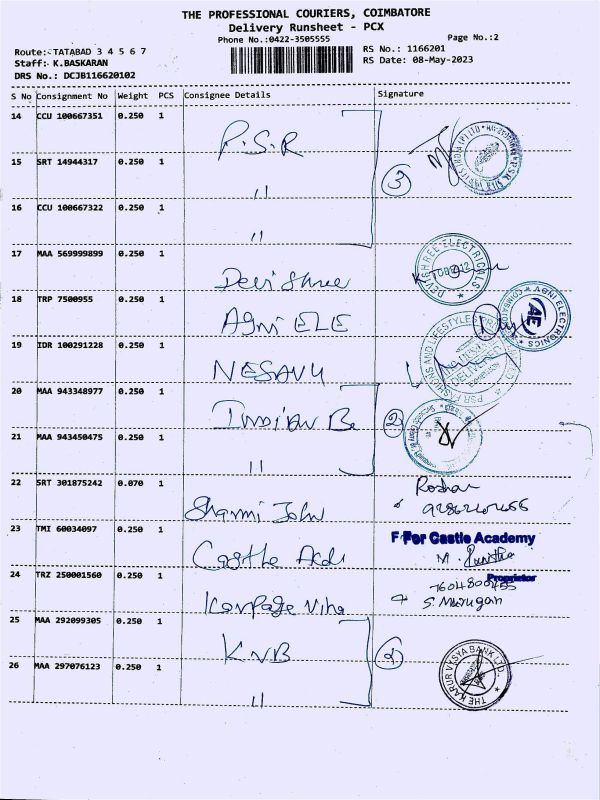 THE PROFESSIONAL COURIERS, COIMBATORE
Delivery Runsheet - PCX
Phone No.:0422-3505555
Page No.:2
Route: TATABAD 3 4 5 6 7
Staff: K.BASKARAN
DRS No.: DCJB116620102
RS No.: 1166201
RS Date: 08-May-2023
S No Consignment No Weight PCS Consignee Details Signature
14 CCU 100667351 0.250 1 P.S.R
15 SRT 14944317 0.250 1 " 3
16 CCU 100667322 0.250 1 "
17 MAA 569999899 0.250 1 Devi Shree
DEVI SHREE ELECTRICALS
18 TRP 7500955 0.250 1 Agni ELE
AGNI ELECTRONICS
AE
19 IDR 100291228 0.250 1 NESAVU
20 MAA 943348977 0.250 1 Indian B 2
21 MAA 943450475 0.250 1 "
22 SRT 301875242 0.070 1 Sharmi John
Roshan
23 TMI 60034097 0.250 1 Castle Acd
F For Castle Academy
Proprietor
24 TRZ 250001560 0.250 1
S. Murugan
25 MAA 292099305 0.250 1 KVB 2
26 MAA 297076123 0.250 1 "
THE KARUR VYSYA BANK LTD.